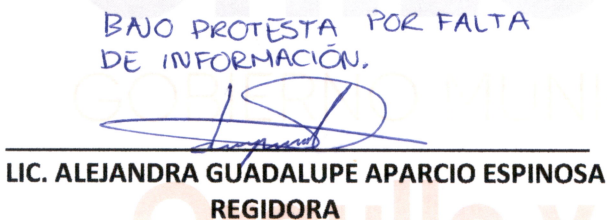 BAJO PROTESTA POR FALTA
DE INFORMACIÓN.
LIC. ALEJANDRA GUADALUPE APARCIO ESPINOSA
REGIDORA